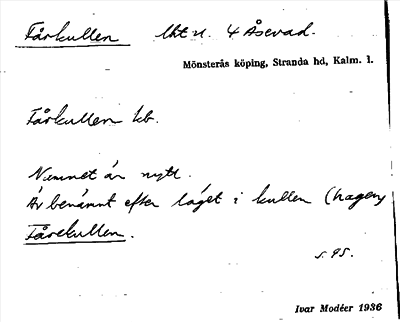 Fårkullen lht nr. 4 Åsevad.
Mönsterås köping, Stranda hd, Kalm. l.
Fårkullen lht.
Namnet är nytt.
Är benämnt efter läget i kullen (hagen)
Fårekullen.
s. 95.
Ivar Modéer 1936